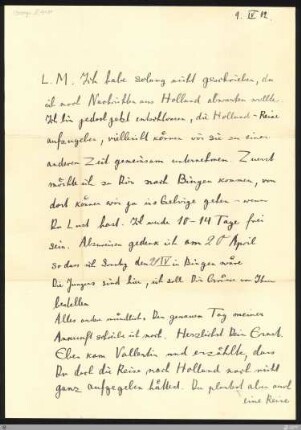 9. IV 12.
L. M. Ich habe solang nicht geschrieben, da
ich noch Nachrichten aus Holland abwarten wollte.
Ich bin jedoch jetzt entschlossen, die Holland-Reise
aufzugeben, vielleicht können wir sie zu einer
anderen Zeit gemeinsam unternehmen. Zuerst
möchte ich zu Dir nach Bingen kommen, von
dort können wir ja ins Gebirge gehen - wenn
Du Lust hast. Ich werde 10-14 Tage frei
sein. Abzureisen gedenk ich am 20 April
sodass ich den 21/IV in Bingen wäre
Die Jungens sind hier, ich soll Dir Grüsse von Ihnen
bestellen
Alles andere mündlich. Den genauen Tag meiner
Ankunft schreibe ich noch. Herzlichst Dein Ernst.
Eben kam Vallentin und erzählte, dass
Du doch die Reise nach Holland noch nicht
ganz aufgegeben hättest. Du planst aber auch
eine Reise